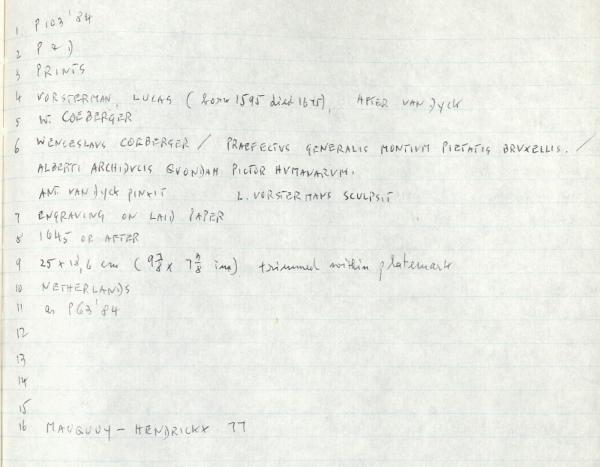 1 P103'84
2 P 2)
3 PRINTS
4 VORSTERMAN, LUCAS (born 1595 died 1675), AFTER VAN DYCK
5 W. COEBERGER
6 WENCESLAVS COEBERGER / PRAEFECTVS GENERALIS MONTIVM PIETATIS BRVXELLIS. /
ALBERTI ARCHIDVCIS QVONDAM PICTOR HVMANARVM.
ANT. VAN DYCK PINXIT L. VORSTERMANS SCULPSIT
7 ENGRAVING ON LAID PAPER
8 1645 OR AFTER
9 25 x 18,6 cm (9 7/8 x 7 3/8 ins) trimmed within platemark
10 NETHERLANDS
11 as P63'84
12
13
14
15
16 MAUQUOY-HENDRICKX 77